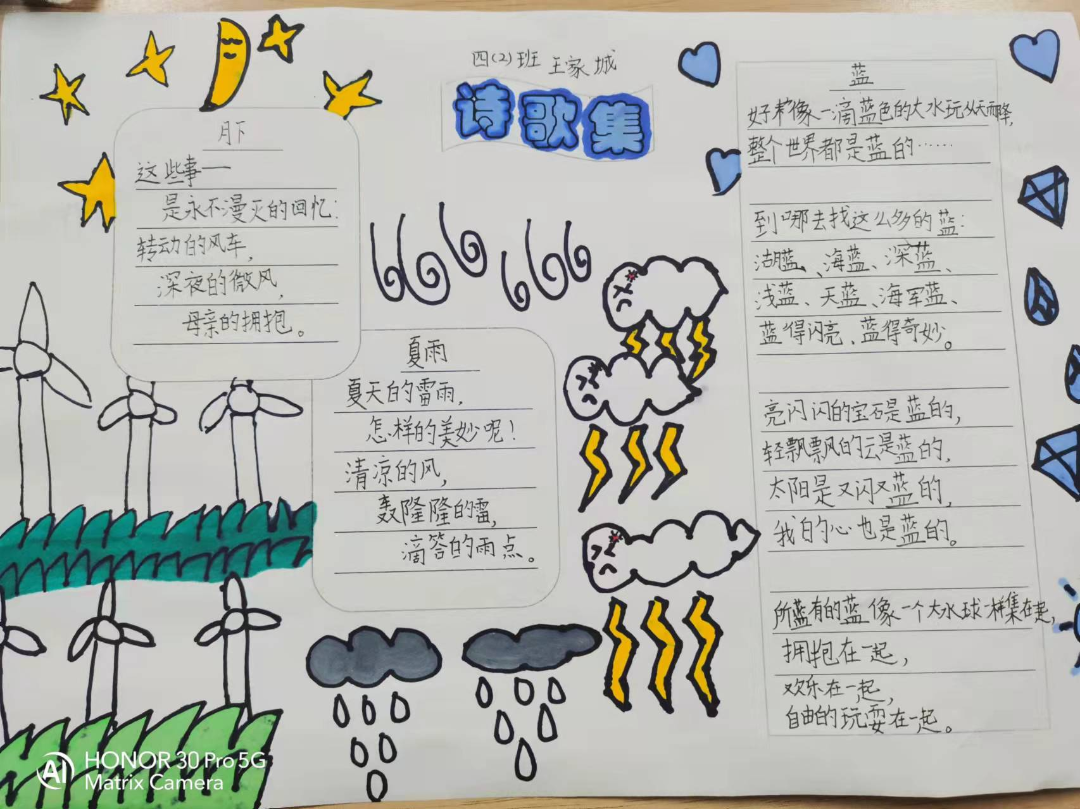 四(2)班 王家城
诗歌集
月下
这些事——
是永不漫灭的回忆:
转动的风车,
深夜的微风,
母亲的拥抱。
夏雨
夏天的雷雨,
怎样的美妙呢!
清凉的风,
轰隆隆的雷,
滴答的雨点。
蓝
好像一滴蓝色的大水玩从天而降,
整个世界都是蓝的……
到哪去找这么多的蓝:
湖蓝、海蓝、深蓝、
浅蓝、天蓝、海军蓝、
蓝得闪亮、蓝得奇妙。
亮闪闪的宝石是蓝的,
轻飘飘的云是蓝的,
太阳是又闪又蓝的,
我的心也是蓝的。
所蓝有的蓝像一个大水球一样集在起,
拥抱在一起,
欢乐在一起,
自由的玩耍在一起。
AI HONOR 30 Pro 5G
Matrix Camera